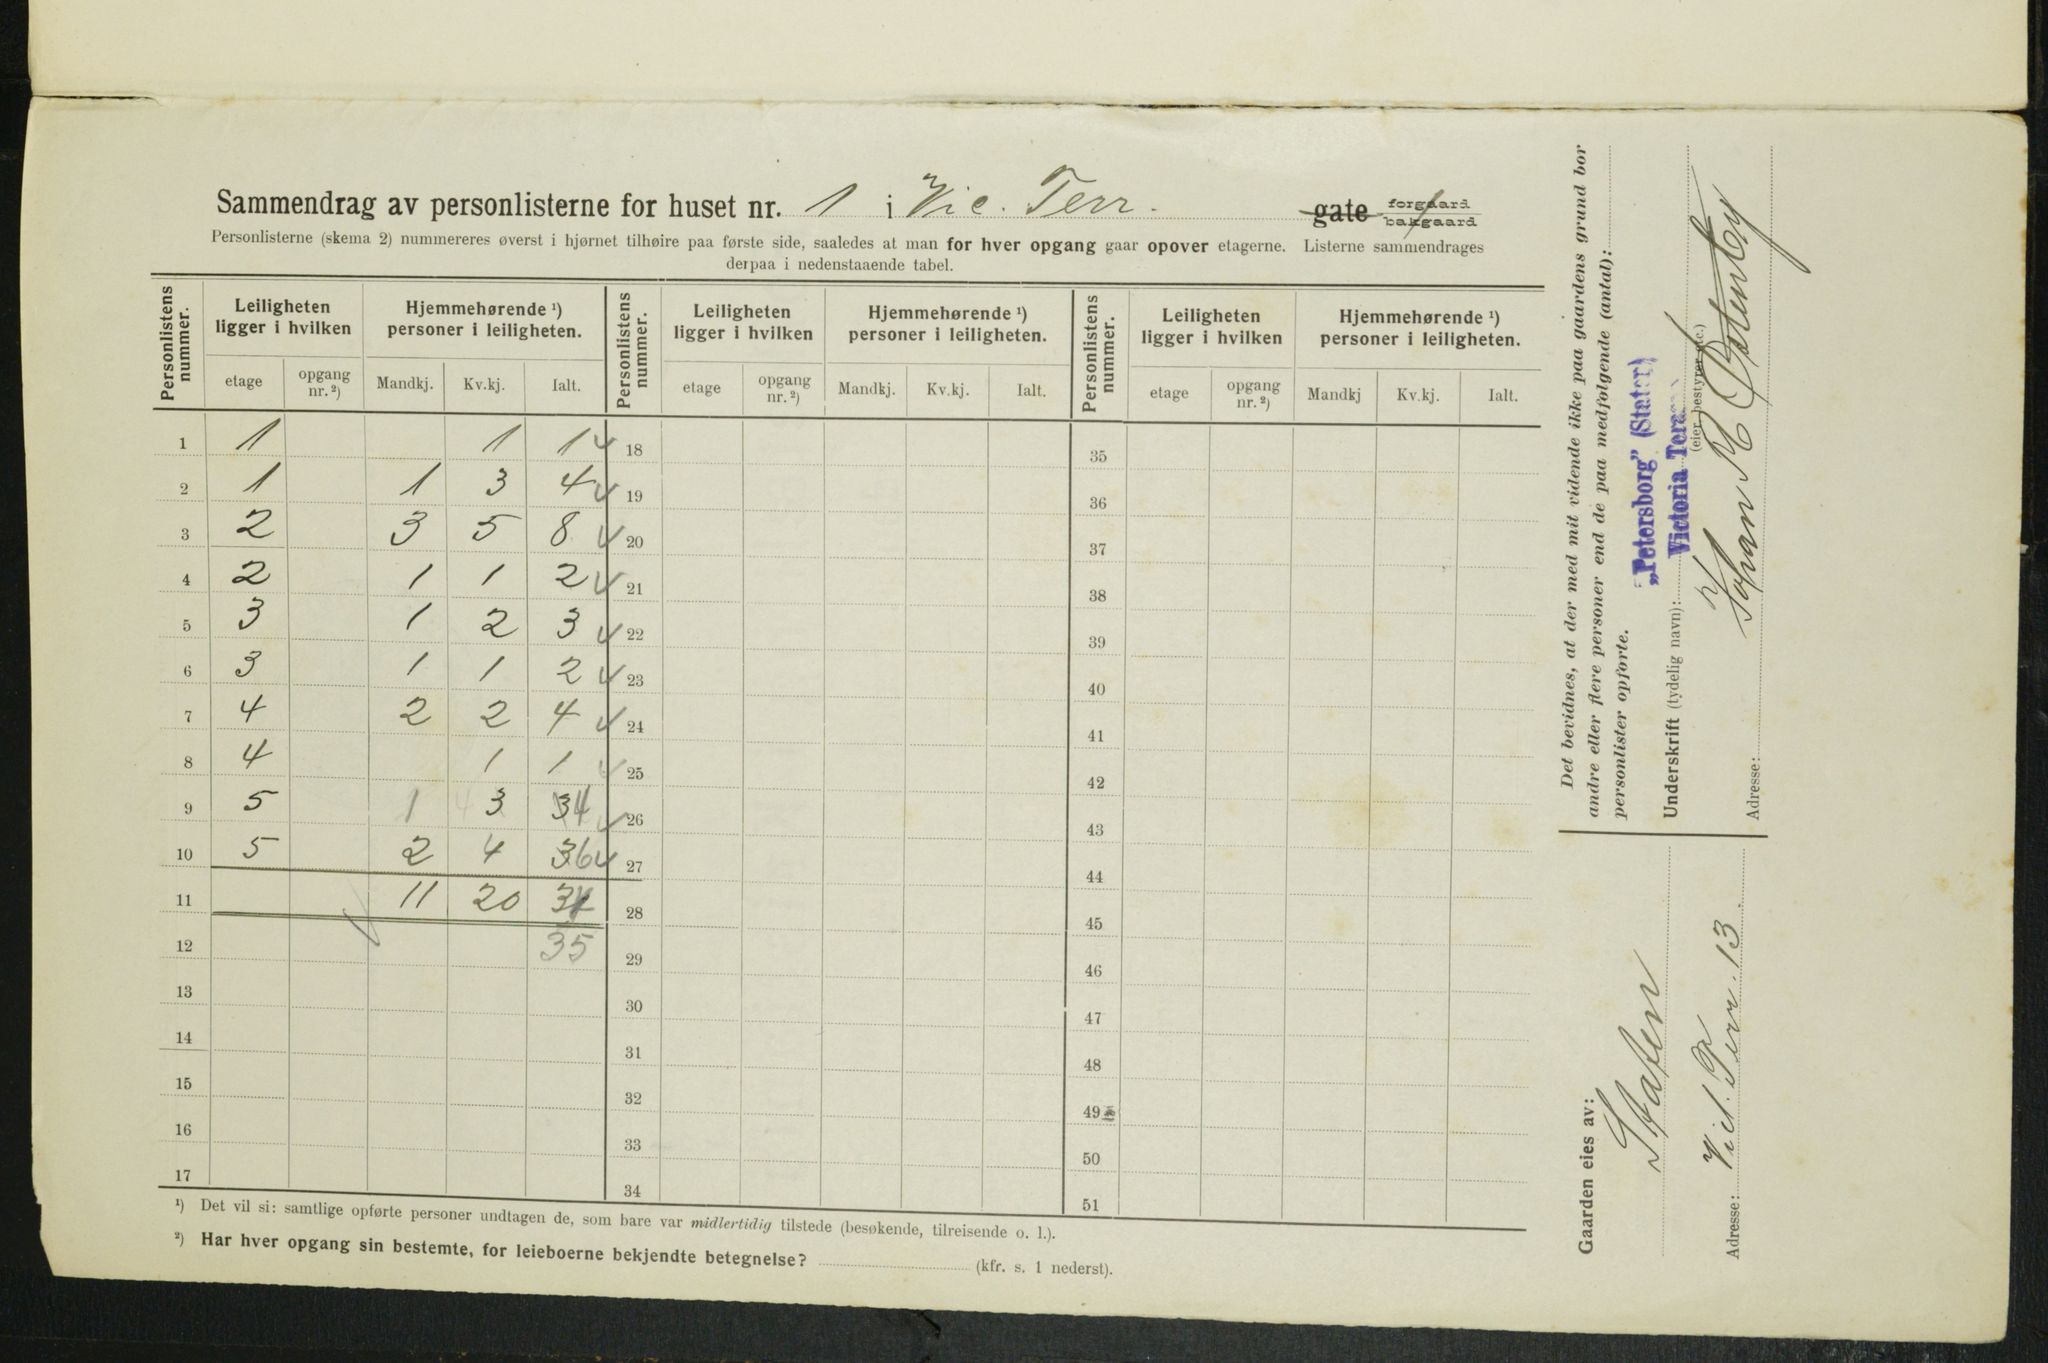 Sammendrag av personlisterne for huset nr. 1 i Vic. Terr. gate forgaard bakgaard
Personlisterne (skema 2) nummereres øverst i hjørnet tilhøire paa første side, saaledes at man for hver opgang gaar opover etagerne. Listerne sammendrages
derpaa i nedenstaaende tabel.
Personlistens nummer. Leiligheten ligger i hvilken Hjemmehørende ¹) personer i leiligheten. Personlistens nummer. Leiligheten ligger i hvilken Hjemmehørende ¹) personer i leiligheten. Personlistens nummer. Leiligheten ligger i hvilken Hjemmehørende ¹) personer i leiligheten.
etage opgang nr. ²) Mandkj. Kv.kj. Ialt. etage opgang nr. ²) Mandkj. Kv.kj. Ialt. etage opgang nr. ²) Mandkj Kv.kj. Ialt.
1 1 1 1 18 35
2 1 1 3 4 19 36
3 2 3 5 8 20 37
4 2 1 1 2 21 38
5 3 1 2 3 22 39
6 3 1 1 2 23 40
7 4 2 2 4 24 41
8 4 1 1 25 42
9 5 1 4 3 3 4 26 43
10 5 2 4 3 6 27 44
11 11 20 31 28 45
12 35 29 46
13 30 47
14 31 48
15 32 49
16 33 50
17 34 51
¹) Det vil si: samtlige opførte personer undtagen de, som bare var midlertidig tilstede (besøkende, tilreisende o. l.).
²) Har hver opgang sin bestemte, for leieboerne bekjendte betegnelse? (kfr. s. 1 nederst).
Det bevidnes, at der med mit vidende ikke paa gaardens grund bor
andre eller flere personer end de paa medfølgende (antal):
personlister opførte.
„Petersborg" (Staten)
Victoria Terr
Underskrift (tydelig navn):
(eier bestyrer etc.)
Johan M Østenby
Adresse:
Gaarden eies av:
Staten
Adresse: Vict. Terr. 13.